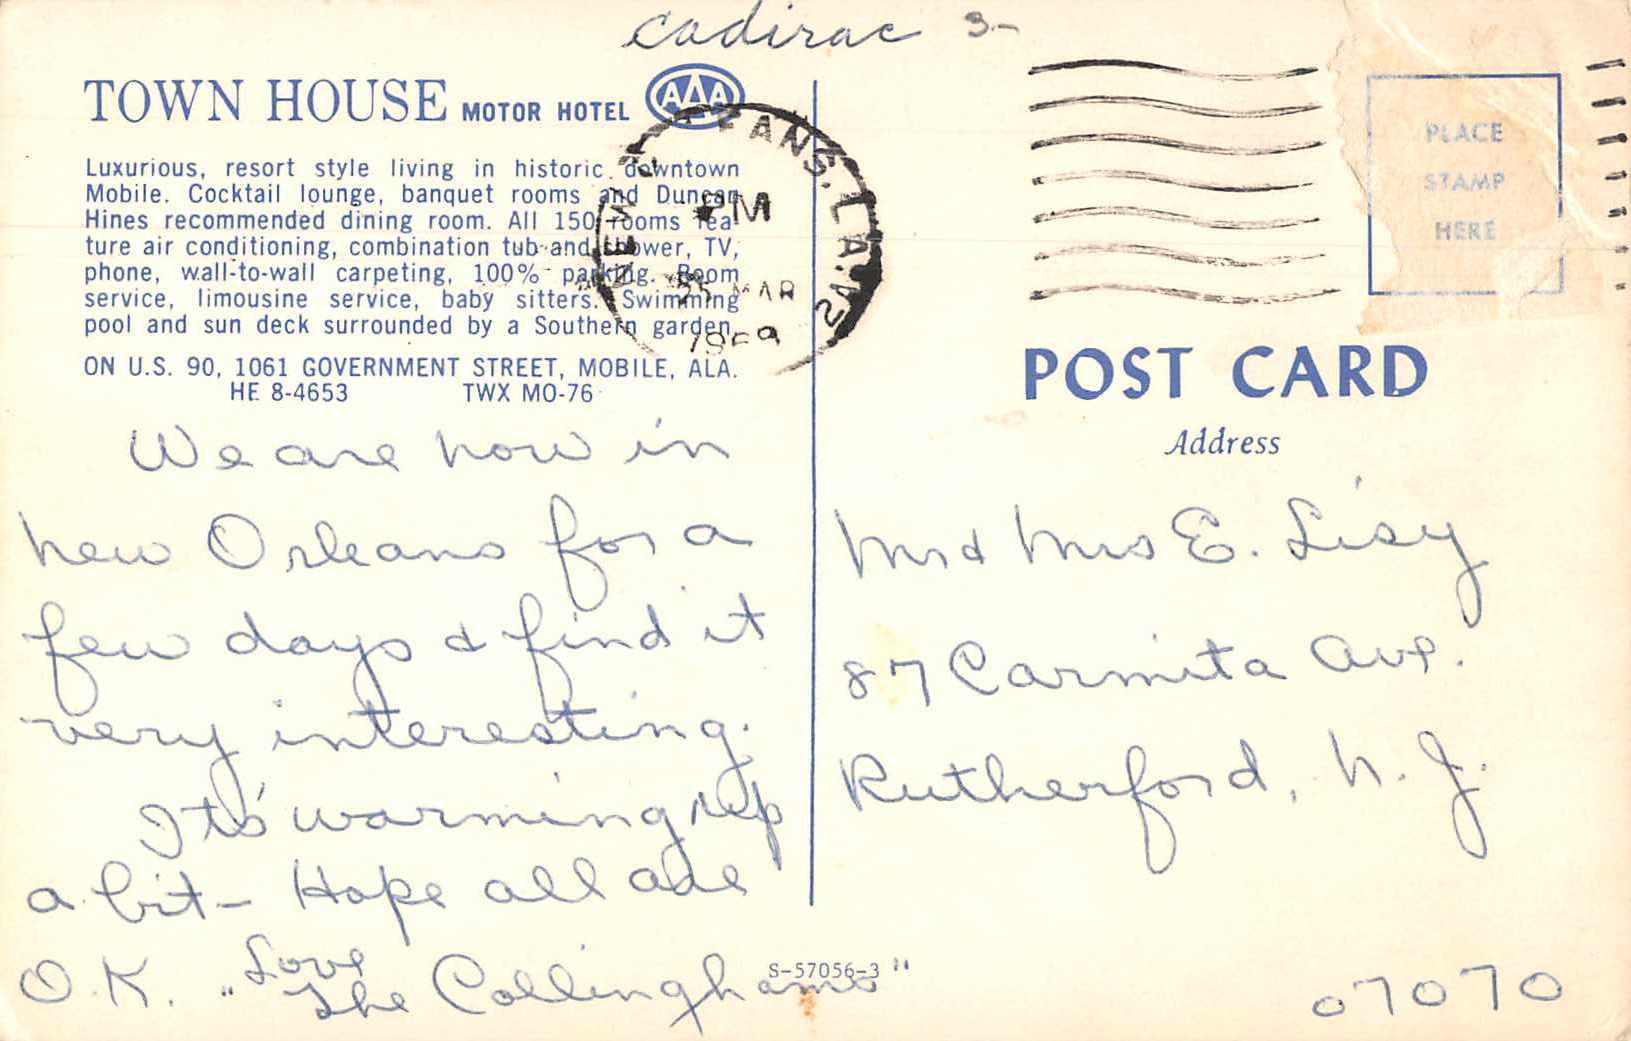 Cadirac 3-
TOWN HOUSE MOTOR HOTEL AAA
Luxurious, resort style living in historic downtown
Mobile. Cocktail lounge, banquet rooms and Duncan
Hines recommended dining room. All 150 rooms fea-
ture air conditioning, combination tub and shower, TV,
phone, wall-to-wall carpeting, 100% parking. Room
service, limousine service, baby sitters. Swimming
pool and sun deck surrounded by a Southern garden.
ON U.S. 90, 1061 GOVERNMENT STREET, MOBILE, ALA.
HE 8-4653 TWX MO-76
NEW ORLEANS, LA.
PM
25 MAR
1969
We are now in
New Orleans for a
few days & find it
very interesting.
Its' warming up
a bit - Hope all are
O.K. "Love
The Collinghams"
S-57056-3
PLACE
STAMP
HERE
POST CARD
Address
Mr & Mrs E. Lisy
87 Carmita Ave.
Rutherford, N. J.
07070